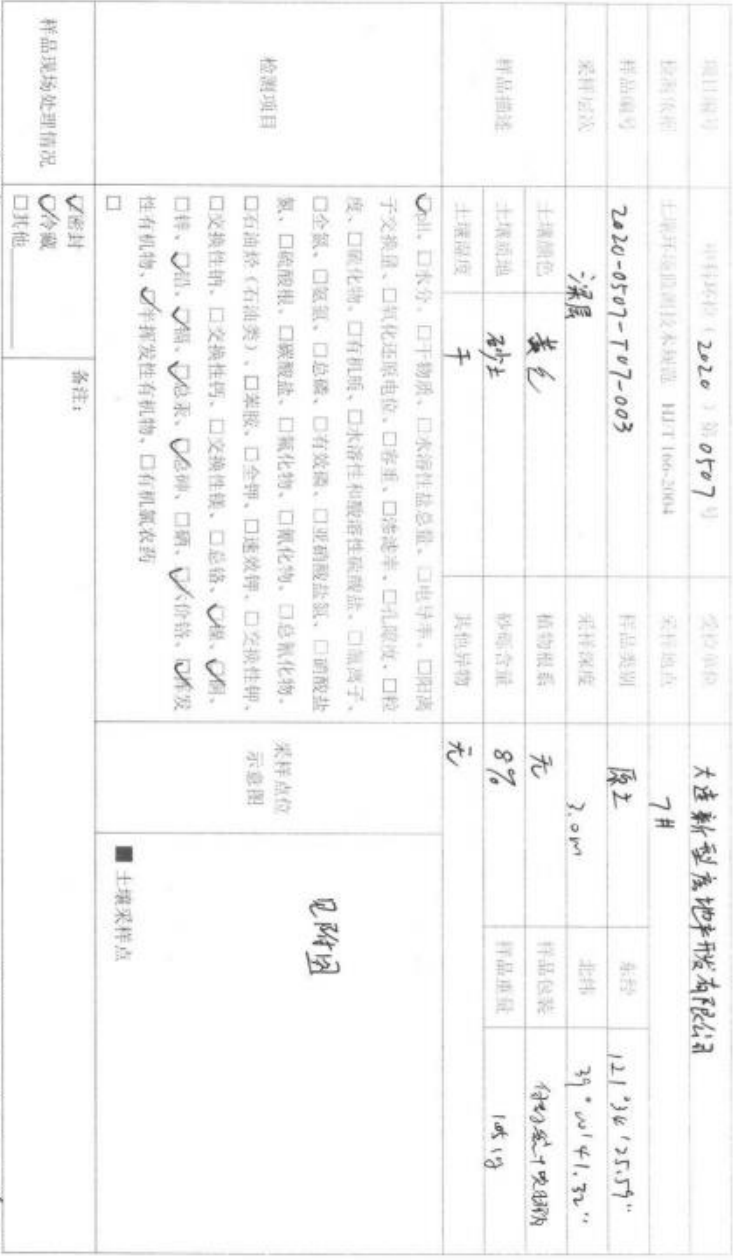 项目编号 ( 2020 ) 第 0507 号 受检单位 大连新型房地产开发有限公司
检测依据 土壤环境监测技术规范 HJ/T 166-2004 采样地点 7#
样品编号 2020-0507-T07-003 样品类别 原土 东经 121°34'25.59"
采样层次 深层 采样深度 3.0m 北纬 39° 41.32"
样品描述 土壤颜色 黄色 植物根系 无 样品包装
土壤质地 砂土 砂砾含量 8% 样品重量
土壤湿度 干 其他异物 无
检测项目
☑pH、□水分、□干物质、□水溶性盐总量、□电导率、□阳离
子交换量、□氧化还原电位、□容重、□渗滤率、□孔隙度、□粒
度、□硫化物、□有机质、□水溶性和酸溶性硫酸盐、□氯离子、
□全氮、□氨氮、□总磷、□有效磷、□亚硝酸盐氮、□硝酸盐
氮、□硫酸根、□碳酸盐、□氟化物、□氰化物、□总氰化物、
□石油烃（石油类）、□苯胺、□全钾、□速效钾、□交换性钾、
□交换性钠、□交换性钙、□交换性镁、□总铬、☑镍、☑铜、
□锌、☑铅、☑镉、☑总汞、☑总砷、□硒、☑六价铬、☑挥发
性有机物、☑半挥发性有机物、□有机氯农药
□
采样点位
示意图
见附图
■ 土壤采样点
样品现场处理情况
☑密封
☑冷藏
□其他
备注：